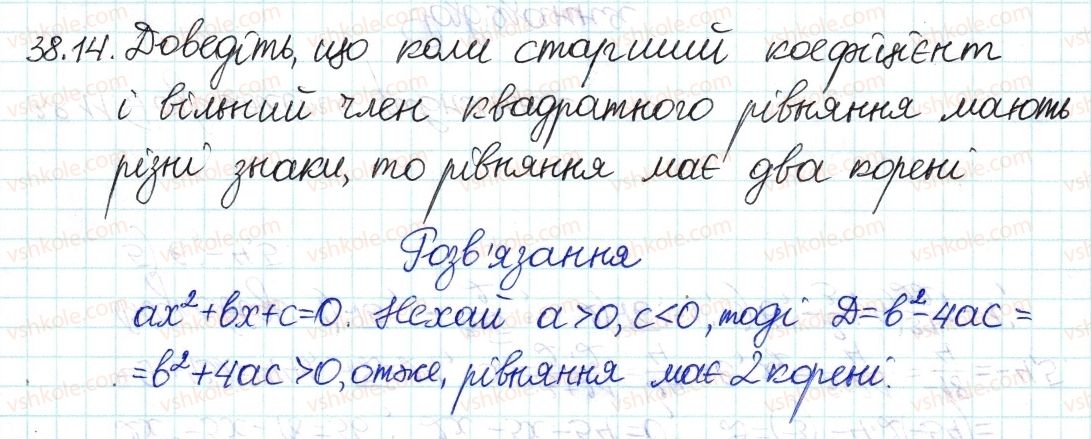 38.14. Доведіть, що коли старший коефіцієнт
і вільний член квадратного рівняння мають
різні знаки, то рівняння має два корені
Розв'язання
ax²+bx+c=0. Нехай a>0, c<0, тоді D=b²-4ac=
=b²+4ac>0, отже, рівняння має 2 корені.